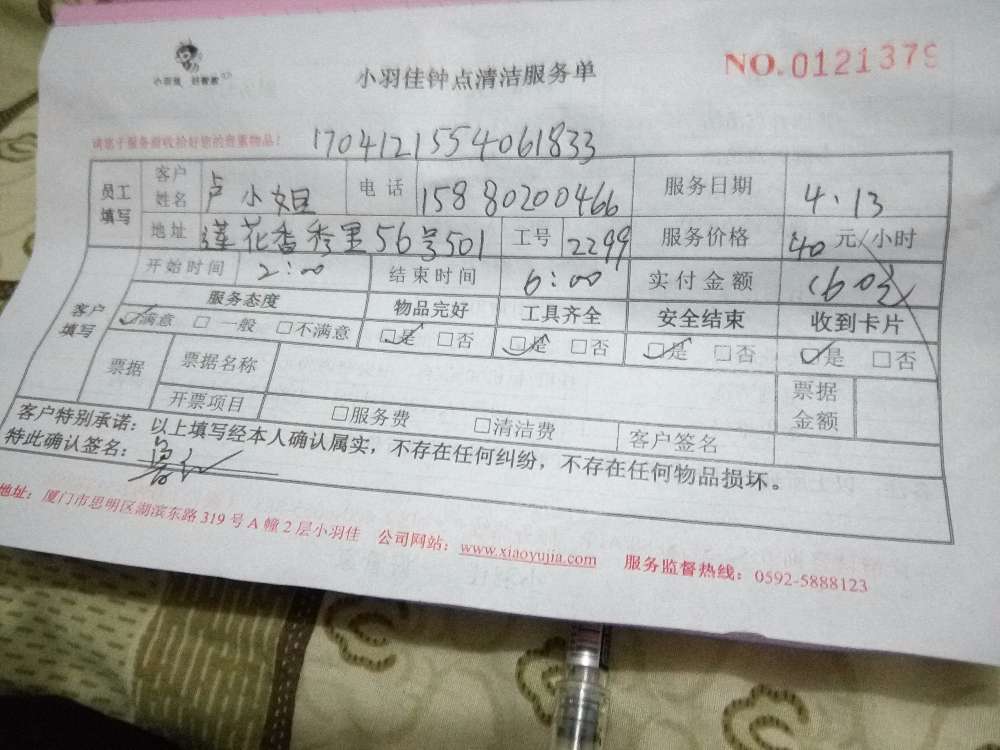 小羽佳钟点清洁服务单
NO.0121379
请您于服务前收拾好您的贵重物品！
1704121554061833
员工填写 客户姓名 卢小姐 电话 15880200466 服务日期 4.13
地址 莲花香秀里56号501 工号 2299 服务价格 40元/小时
客户填写 开始时间 2:00 结束时间 6:00 实付金额 160元
服务态度 物品完好 工具齐全 安全结束 收到卡片
☑满意 □一般 □不满意 ☑是 □否 ☑是 □否 ☑是 □否 ☑是 □否
票据 票据名称 票据金额
开票项目 □服务费 □清洁费 客户签名
客户特别承诺：以上填写经本人确认属实，不存在任何纠纷，不存在任何物品损坏。
特此确认签名：
地址：厦门市思明区湖滨东路319号A幢2层小羽佳 公司网站：www.xiaoyujia.com 服务监督热线：0592-5888123